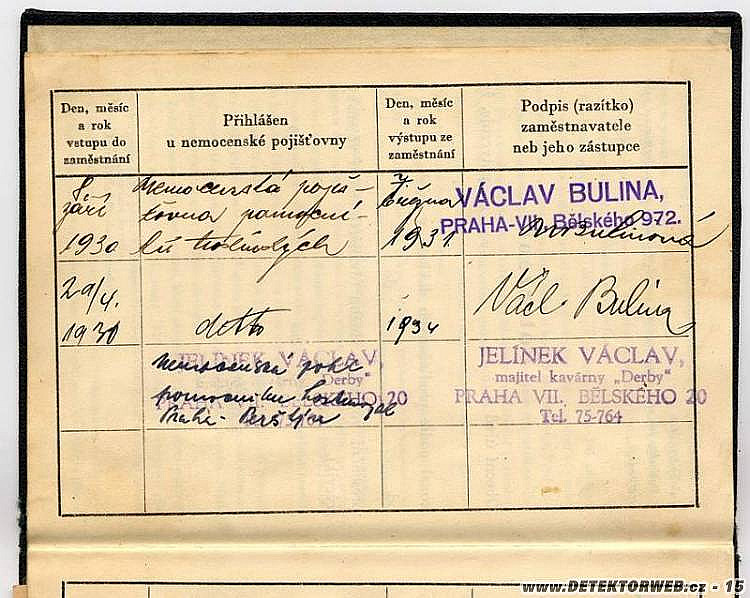 Den, měsíc
a rok
vstupu do
zaměstnání
Přihlášen
u nemocenské pojišťovny
Den, měsíc
a rok
výstupu ze
zaměstnání
Podpis (razítko)
zaměstnavatele
neb jeho zástupce
8.
září
1930
Nemocenská pojiš-
ťovna pomocní-
ků
7
března
1931
VÁCLAV BULINA,
PRAHA-VII. Bělského 972.
Bulinová
29/4.
1930
detto
1934
Václ Bulina
JELÍNEK VÁCLAV,
"Derby"
BĚLSKÉHO 20
nemocenská pokl
pomocníku
Praha -
JELÍNEK VÁCLAV,
majitel kavárny „Derby"
PRAHA VII. BĚLSKÉHO 20
Tel. 75-764
www.DETEKTORWEB.cz - 15